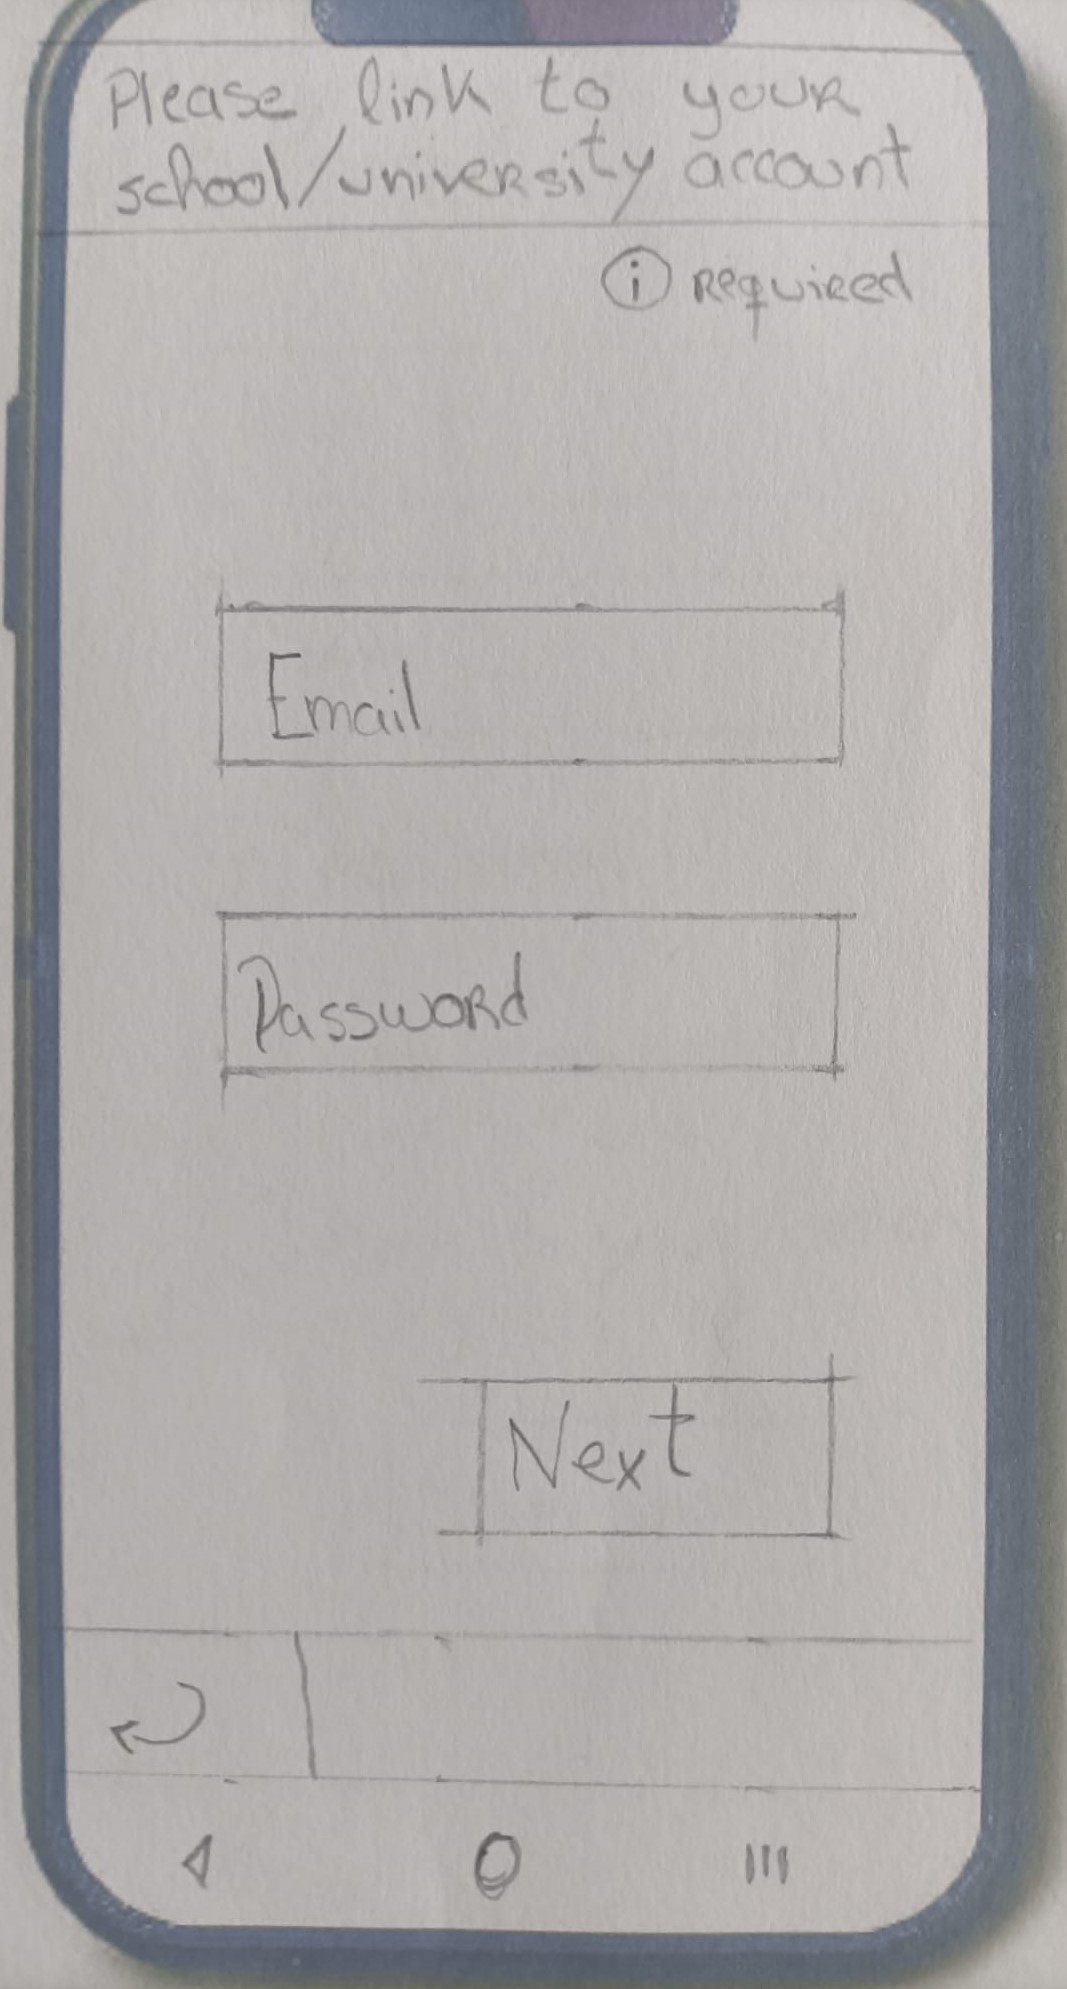 Please link to your
school/university account
i required
Email
Password
Next